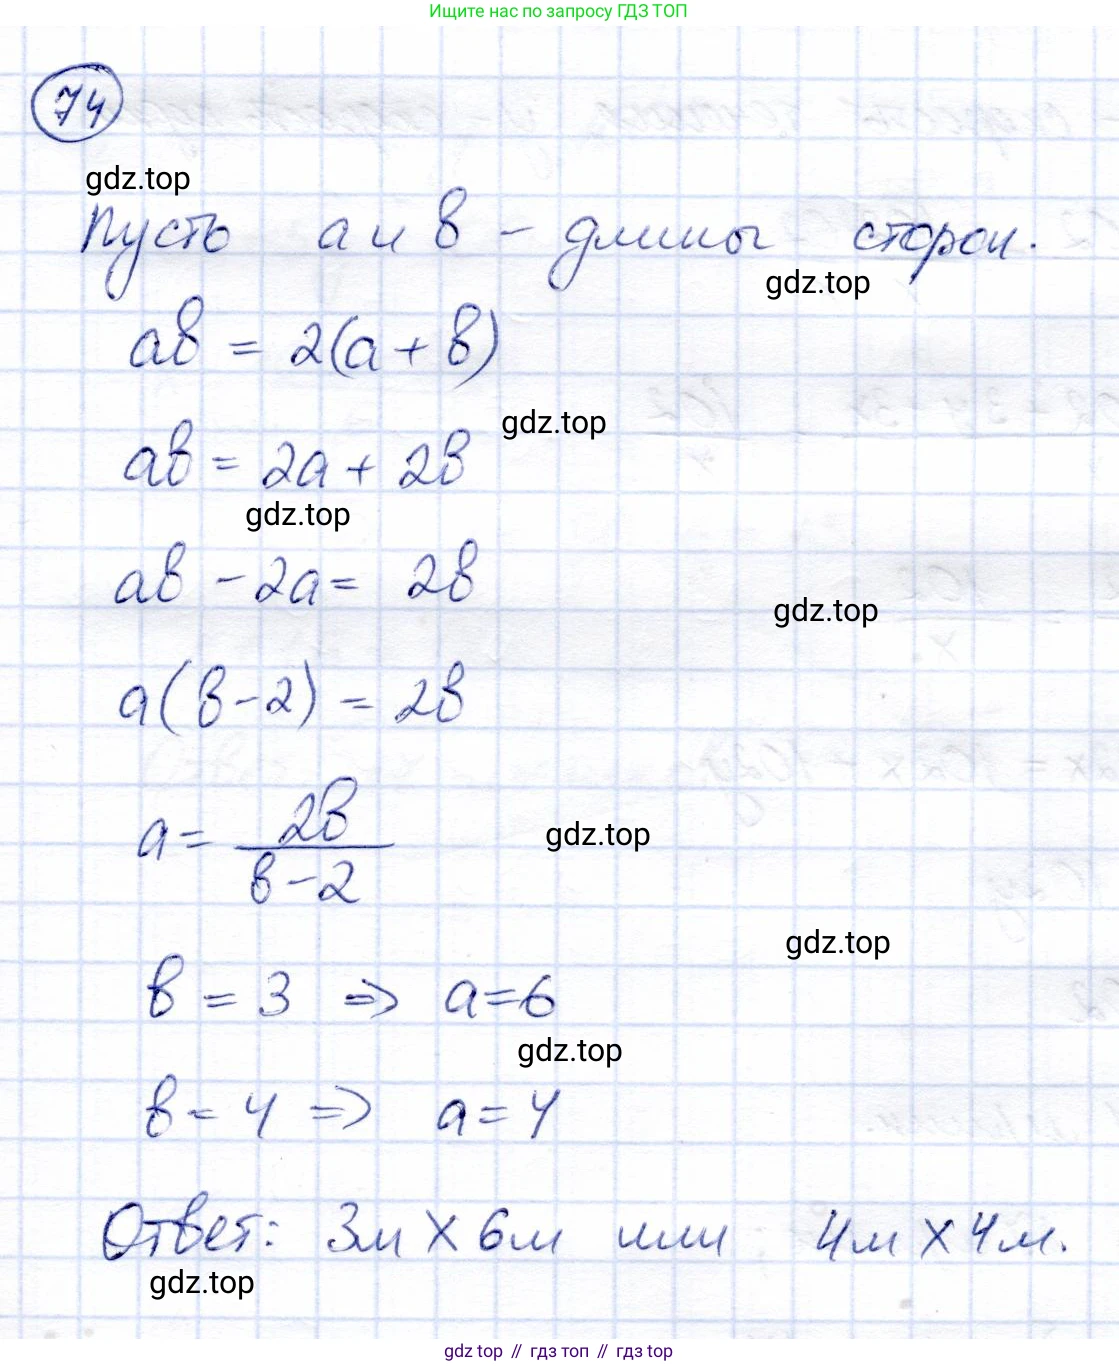 Ищите нас по запросу ГДЗ ТОП
74
gdz.top
Пусть a и b - длины сторон.
gdz.top
ab = 2(a + b)
gdz.top
ab = 2a + 2b
gdz.top
ab - 2a = 2b
gdz.top
a(b-2) = 2b
a = 2b / b-2
gdz.top
gdz.top
b = 3 => a=6
gdz.top
b = 4 => a=4
Ответ: 3м X 6м или 4м X 4м.
gdz.top
gdz top // гдз топ // gdz.top